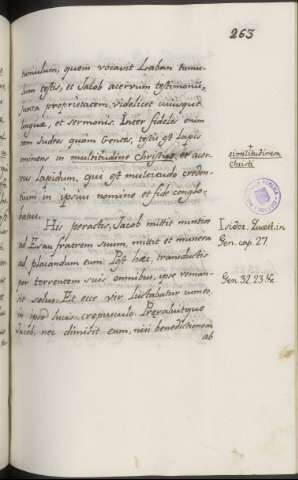 263
tumulum, quem vocavit Laban tumu-
lum testis, et Jacob acervum testimonii,
juxta proprietatem videlicet cuiusque
linguæ, et sermonis. Inter fideles enim
tam Judeos quam Gentes, testis est lapis
eminens in multitudine Christiana et acer-
vus lapidum, qui est multitudo creden-
tium in ipsius nomine et fide congle-
batur.
His peractis, Jacob mittit nuntios
ad Esau fratrem suum, mittit et munera
ad placandum eum. Post hæc transductis
per torrentem suis omnibus, ipse reman-
sit solus. Et ecce vir luctabatur cum eo,
in ipso lucis crepusculo. Prevaluitque
Jacob, nec dimisit eum, nisi benedictionem
ab
+
similitudinem
Christi
Isidor. Quæst. in
Gen. cap. 27
Gen. 32. 23